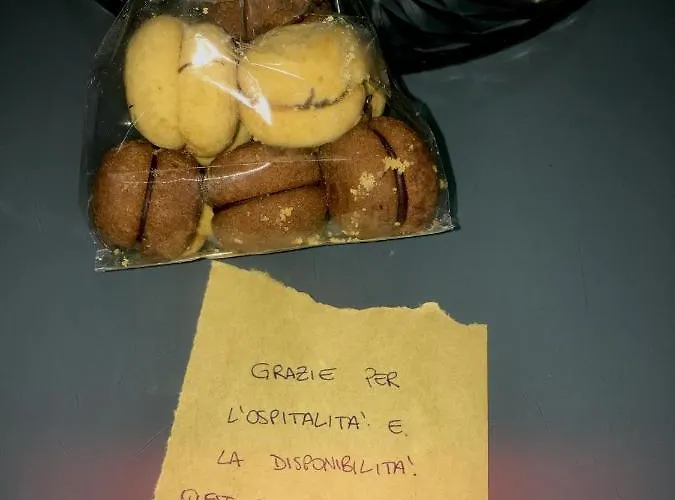 GRAZIE PER
L'OSPITALITA' E
LA DISPONIBILITA'!